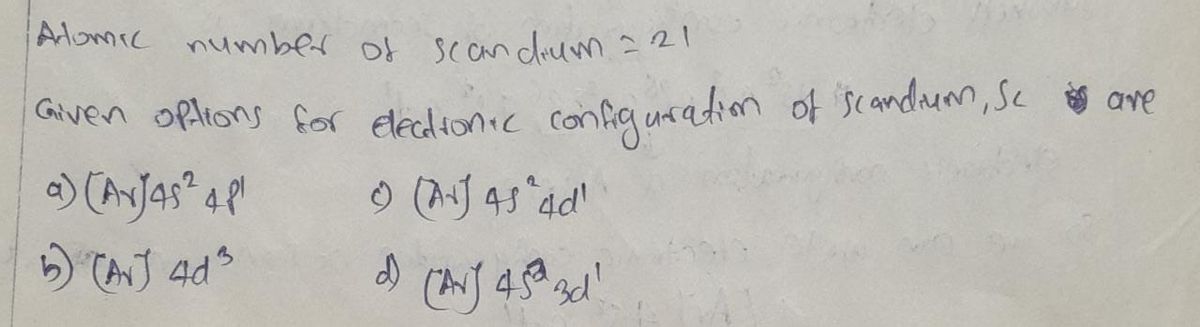 Atomic number of scandium = 21
Given options for electronic configuration of scandium, Sc are
a) [Ar] 4s² 4p¹ c) [Ar] 4s² 4d¹
b) [Ar] 4d³ d) [Ar] 4s² 3d¹